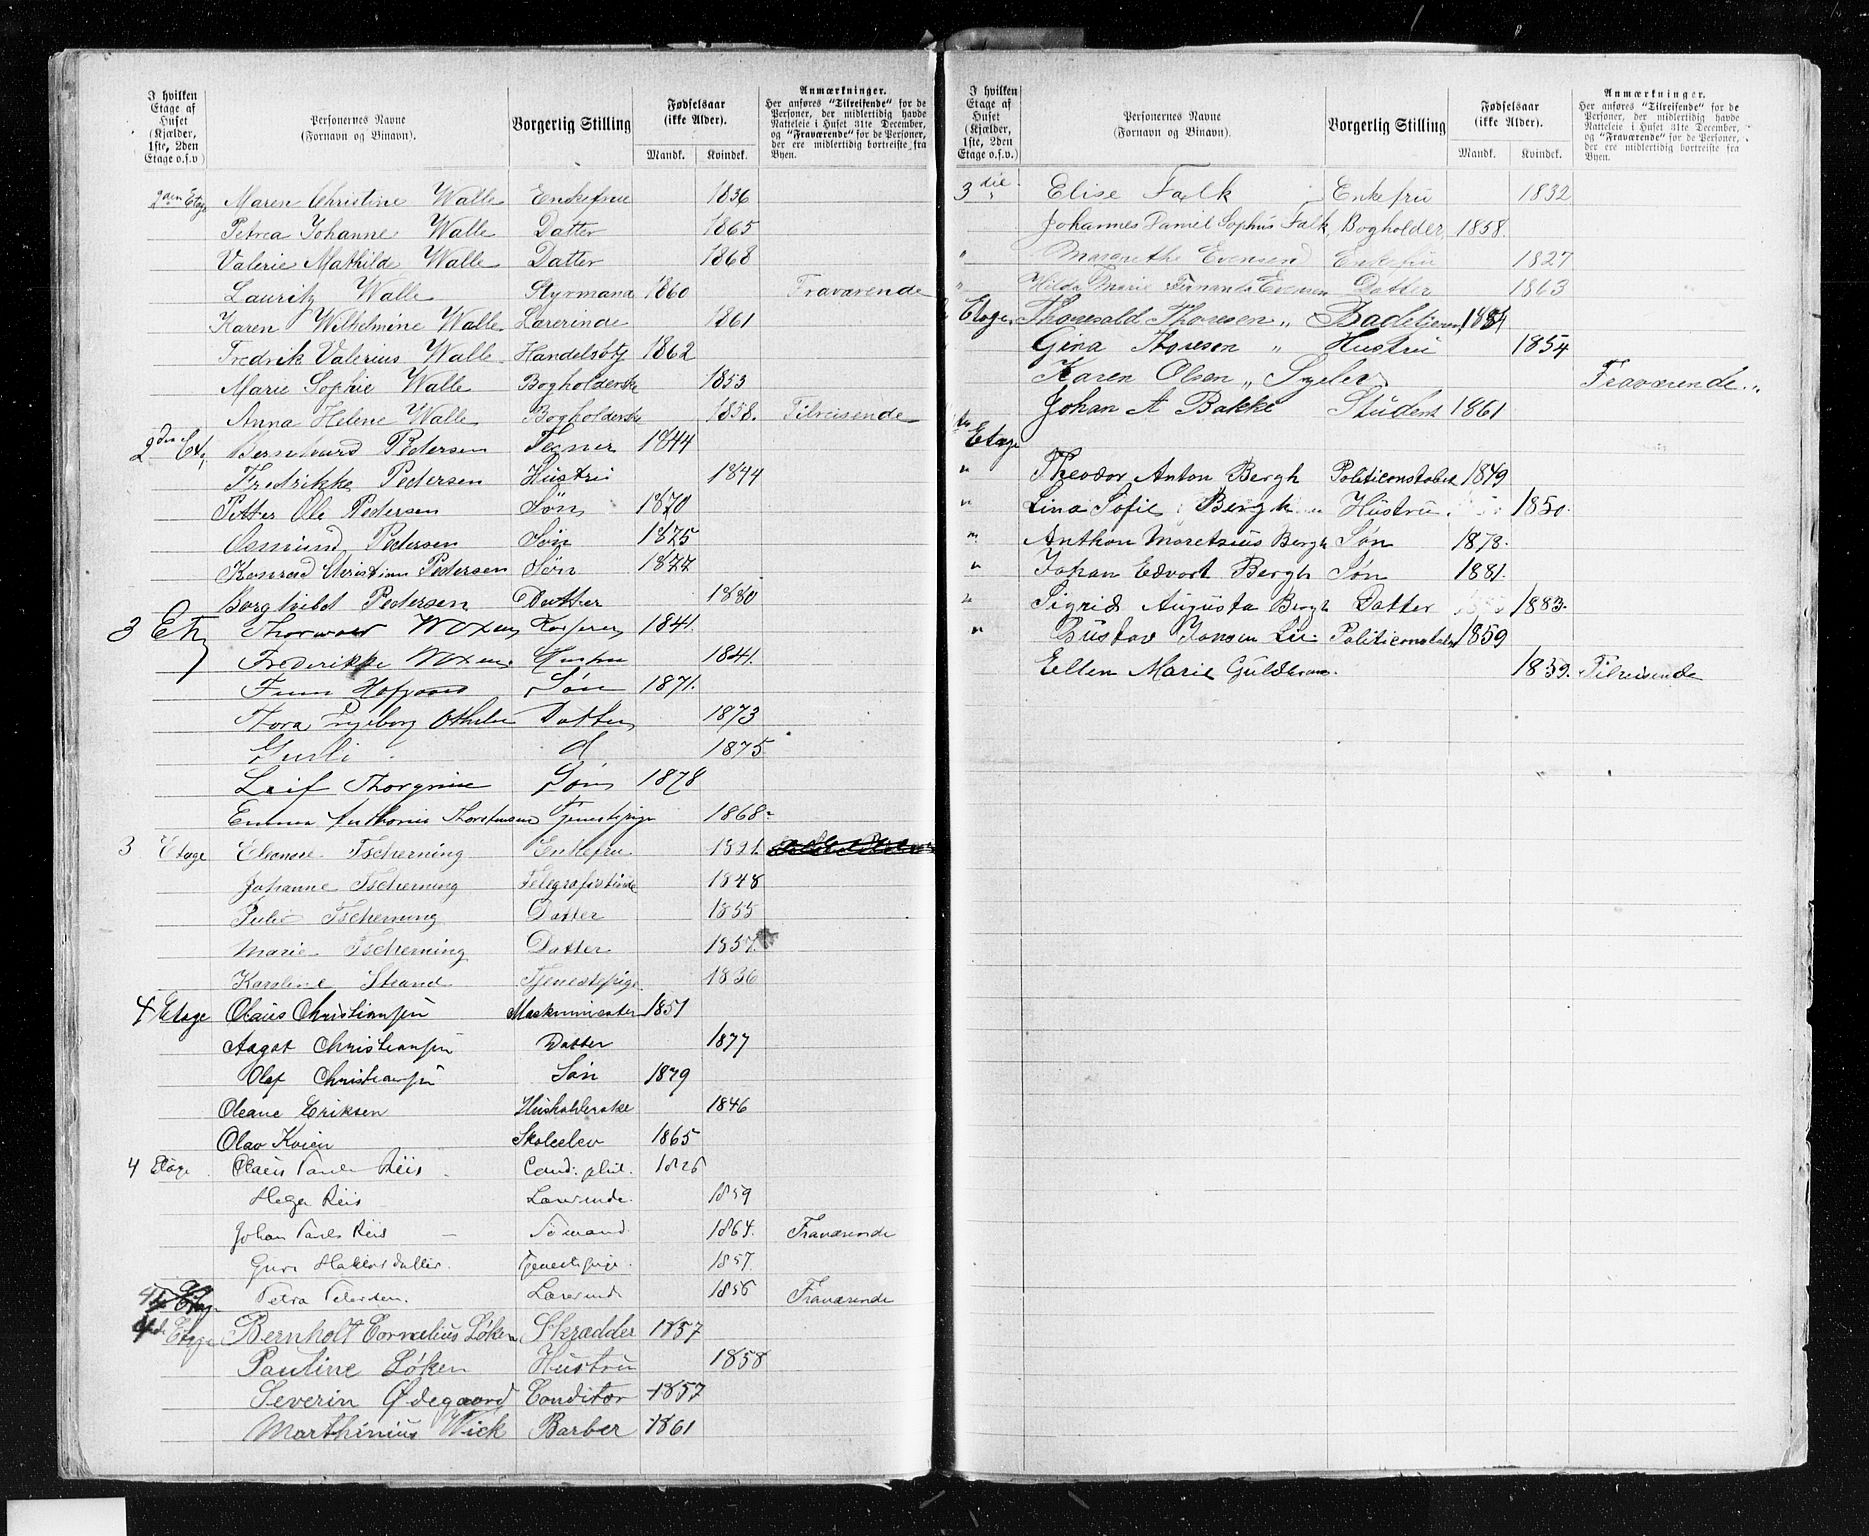 I hvilken Etage af Huset (Kjælder, 1ste, 2den Etage o.s.v)
Personernes Navne (Fornavn og Binavn).
Borgerlig Stilling
Fødselsaar (ikke Alder).
Mandk.
Kvindek.
Anmærkninger.
Her anføres "Tilreisende" for de Personer, der midlertidig havde Natteleie i Huset 31te December, og "Fraværende" for de Personer, der ere midlertidig bortreiste fra Byen.
2den Etage Maren Christine Walle Enkefrue 1836
Petrea Johanne Walle Datter 1865
Valerie Mathilde Walle Datter 1868
Lauritz Walle Styrmand 1860 Fraværende
Karen Wilhelmine Walle Lærerinde 1861
Fredrik Valerius Walle Handelsbtj 1862
Marie Sophie Walle Bogholderske 1853
Anna Helene Walle Bogholderske 1858. Tilreisende
2den Et. Bernhard Pedersen 1844
Fredrikke Pedersen Hustru 1844
Petter Ole Pedersen Søn 1870
Osmund Pedersen Søn 1875
Konrad Christian Pedersen Søn 1877
Borghild Pedersen Datter 1880
3 Etg Thorwald Woxen 1841.
Frederikke Woxen Hustru 1841.
Søn 1871.
Thora Ingeborg Datter 1873
d 1875
Leif Søn 1878
Emma Tjenestepige 1868
3 Etage Eleonore Tscherning Enkefru 1821.
Johanne Tscherning Telegrafistinde 1848
Julie Tscherning Datter 1855
Marie Tscherning Datter 1857.
Karoline Strand Tjenestepige 1836
4 Etage Olaus Christiansen Maskinmester 1851
Aagot Christiansen Datter 1877
Olaf Christiansen Søn 1879
Oleane Eriksen Husholderske 1846
Olav Kvien Skoleelev 1865
4 Etage Claus Reis Cand. phil. 1826
Helga Reis Lærerinde. 1859
Johan Reis Sømand 1864. Fraværende
Guri Tjenestepige. 1857.
Petra Petersen. Lærerinde 1856 Fraværende
4de Etage Bernholt Cornelius Løken Skrædder 1857
Pauline Løken Hustru 1858
Severin Ødegaard Conditor 1857
Marthinius Wick Barber 1861
I hvilken Etage af Huset (Kjælder, 1ste, 2den Etage o.s.v.)
Personernes Navne (Fornavn og Binavn).
Borgerlig Stilling
Fødselsaar (ikke Alder).
Mandk.
Kvindek.
Anmærkninger.
Her anføres "Tilreisende" for de Personer, der midlertidig havde Natteleie i Huset 31te December, og "Fraværende" for de Personer, der ere midlertidig bortreiste fra Byen.
3die Elise Falk Enkefru 1832
Johannes Daniel Sophus Falk, Bogholder 1858.
" Margrethe Evensen Enkefru 1827
" Hilda Marie Evensen Datter 1863
Etage Thorvald Thoresen "
Gina Thoresen " Hustru 1854
Karen Olsen " Fraværende "
Johan A Bakke Student 1861
Etage
" Theodor Anton Bergh Politiconstabel 1849
" Lina Sofie Bergh " Hustru. 1850.
" Anthon Moretsius Bergh Søn 1878.
" Johan Edvart Bergh Søn 1881.
" Sigrid Augusta Bergh Datter 1883.
" Gustav Jonsen Lie Politiconstabel 1859
Ellen Marie 1839. Tilreisende